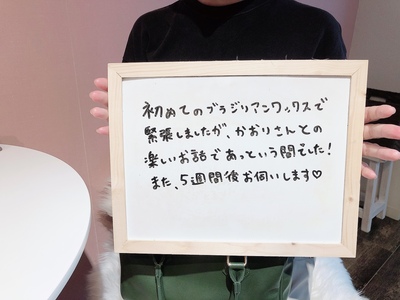 初めてのブラジリアンワックスで
緊張しましたが、かおりさんとの
楽しいお話であっという間でした!
また、5週間後お伺いします♡